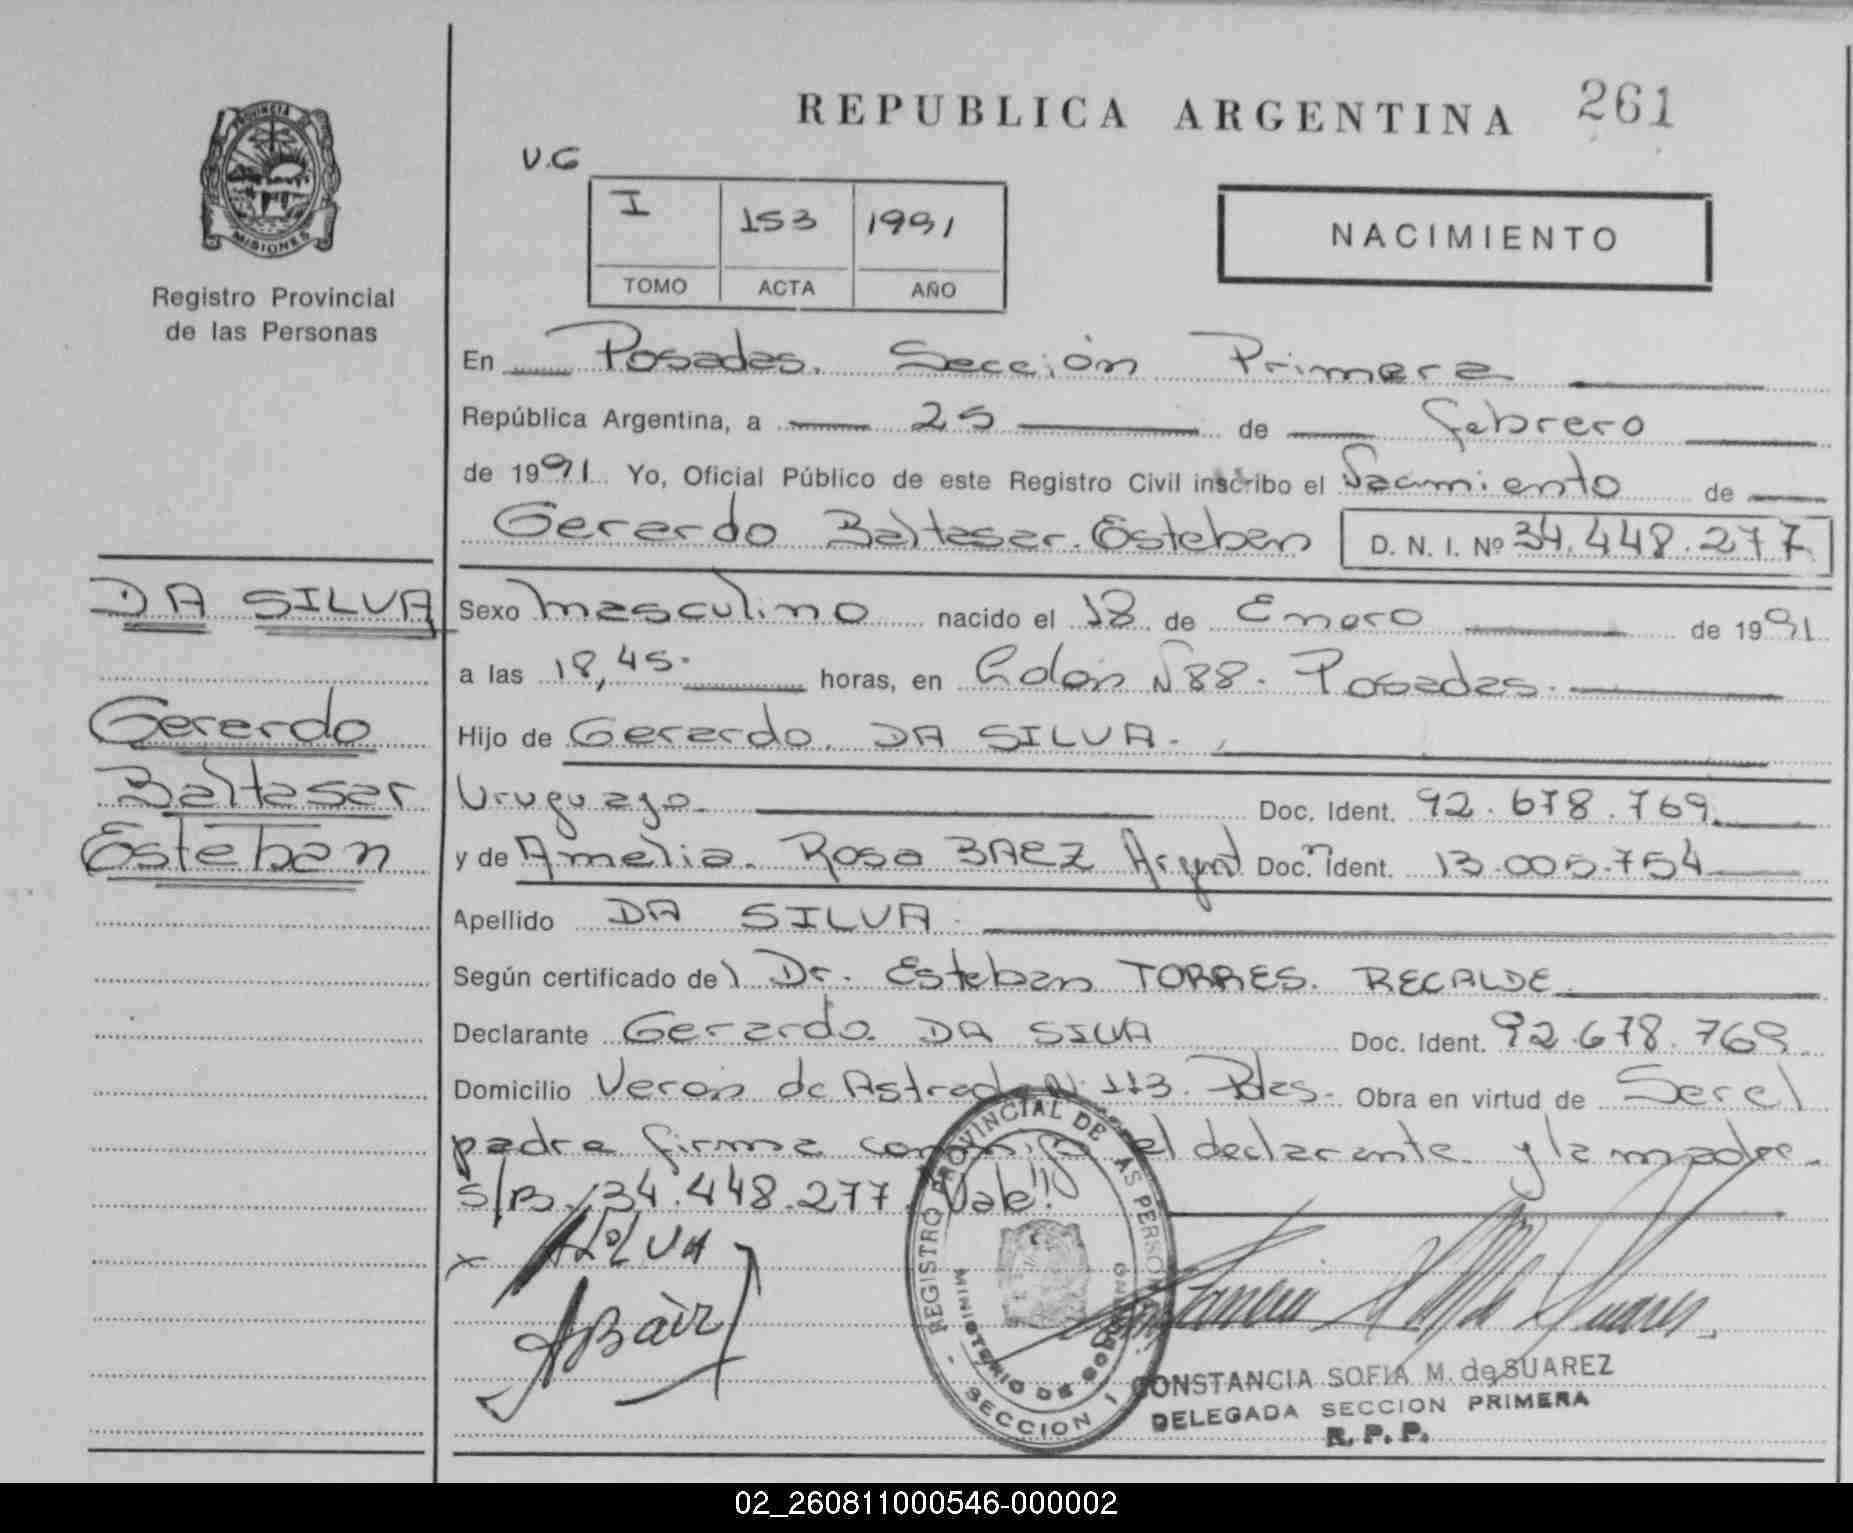 REPUBLICA ARGENTINA 261
PROVINCIA
MISIONES
Registro Provincial
de las Personas
V.G
I 153 1991
TOMO ACTA AÑO
NACIMIENTO
En Posadas. Sección Primera
República Argentina, a 25 de febrero
de 1991 Yo, Oficial Público de este Registro Civil inscribo el Nacimiento de
Gerardo Baltasar Esteban D. N. I. Nº 34.448.277
DA SILVA
Gerardo
Baltasar
Esteban
Sexo masculino nacido el 18 de Enero de 1991
a las 18,45. horas, en Colón N 88. Posadas.
Hijo de Gerardo. DA SILVA.
Uruguayo. Doc. Ident. 92.678.769
y de Amelia Rosa BAEZ Argent Doc. Ident. 13.005.754
Apellido DA SILVA.
Según certificado del Dr. Esteban TORRES. RECALDE
Declarante Gerardo. DA SILVA Doc. Ident. 92.678.769.
Domicilio Veron de Astrada N. 113. Pdas. Obra en virtud de Ser el
padre firma conmigo el declarante y la madre.
S/B. 34.448.277 Vale.
x
ABaèz
REGISTRO PROVINCIAL DE LAS PERSONAS
MINISTERIO DE GOBIERNO
- SECCION 1 -
CONSTANCIA SOFIA M. de SUAREZ
DELEGADA SECCION PRIMERA
R. P. P.
02_260811000546-000002